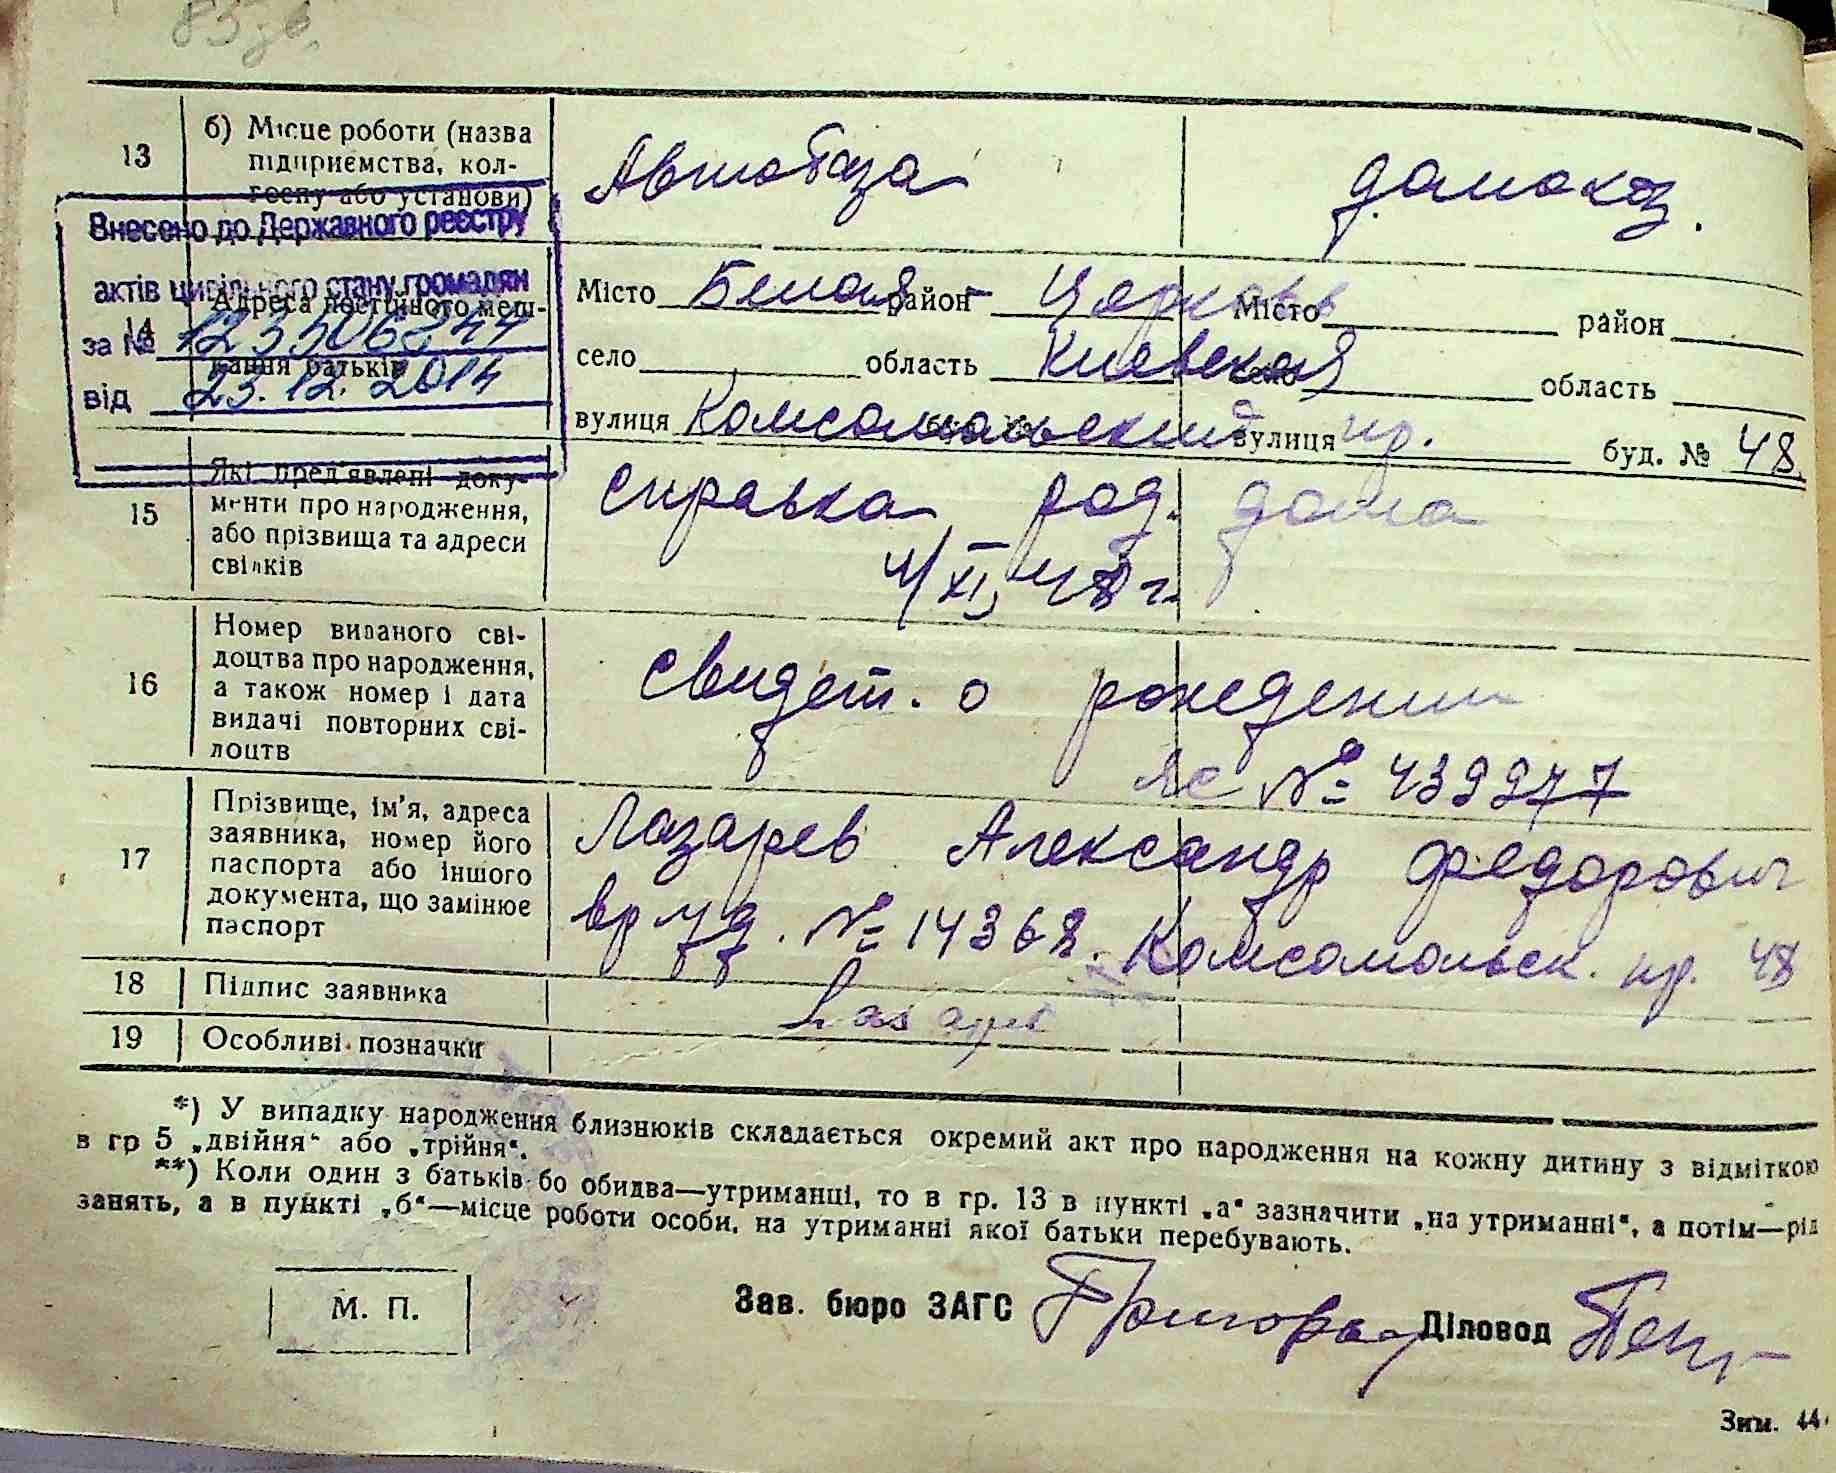 13
б) Місце роботи (назва
підприємства, кол-
госпу або установи)
Автобаза
домохоз.
Внесено до Державного реєстру
актів цивільного стану громадян
за №
від 23.12.2014
14
Адреса постійного меш-
кання батьків
Місто Белая - район Церковь Місто район
село область Киевская село область
вулиця Комсомольский вулиця пр. буд. № 48.
15
Які пред'явлені доку-
менти про народження,
або прізвища та адреси
свідків
справка род. дома
4/XI, 48 г.
16
Номер виданого сві-
доцтва про народження,
а також номер і дата
видачі повторних сві-
доцтв
свидет. о рождении
№ 439977
17
Прізвище, ім'я, адреса
заявника, номер його
паспорта або іншого
документа, що замінює
паспорт
Лазарев Александр Федорович
вр уд. № 14368. Комсомольск. пр. 48
18
Підпис заявника
19
Особливі позначки
*) У випадку народження близнюків складається окремий акт про народження на кожну дитину з відміткою
в гр 5 „двійня“ або „трійня“.
**) Коли один з батьків бо обидва—утриманці, то в гр. 13 в пункті „а“ зазначити „на утриманні“, а потім—рід
занять, а в пункті „б“—місце роботи особи, на утриманні якої батьки перебувають.
М. П.
Зав. бюро ЗАГС
Діловод
Зим. 44